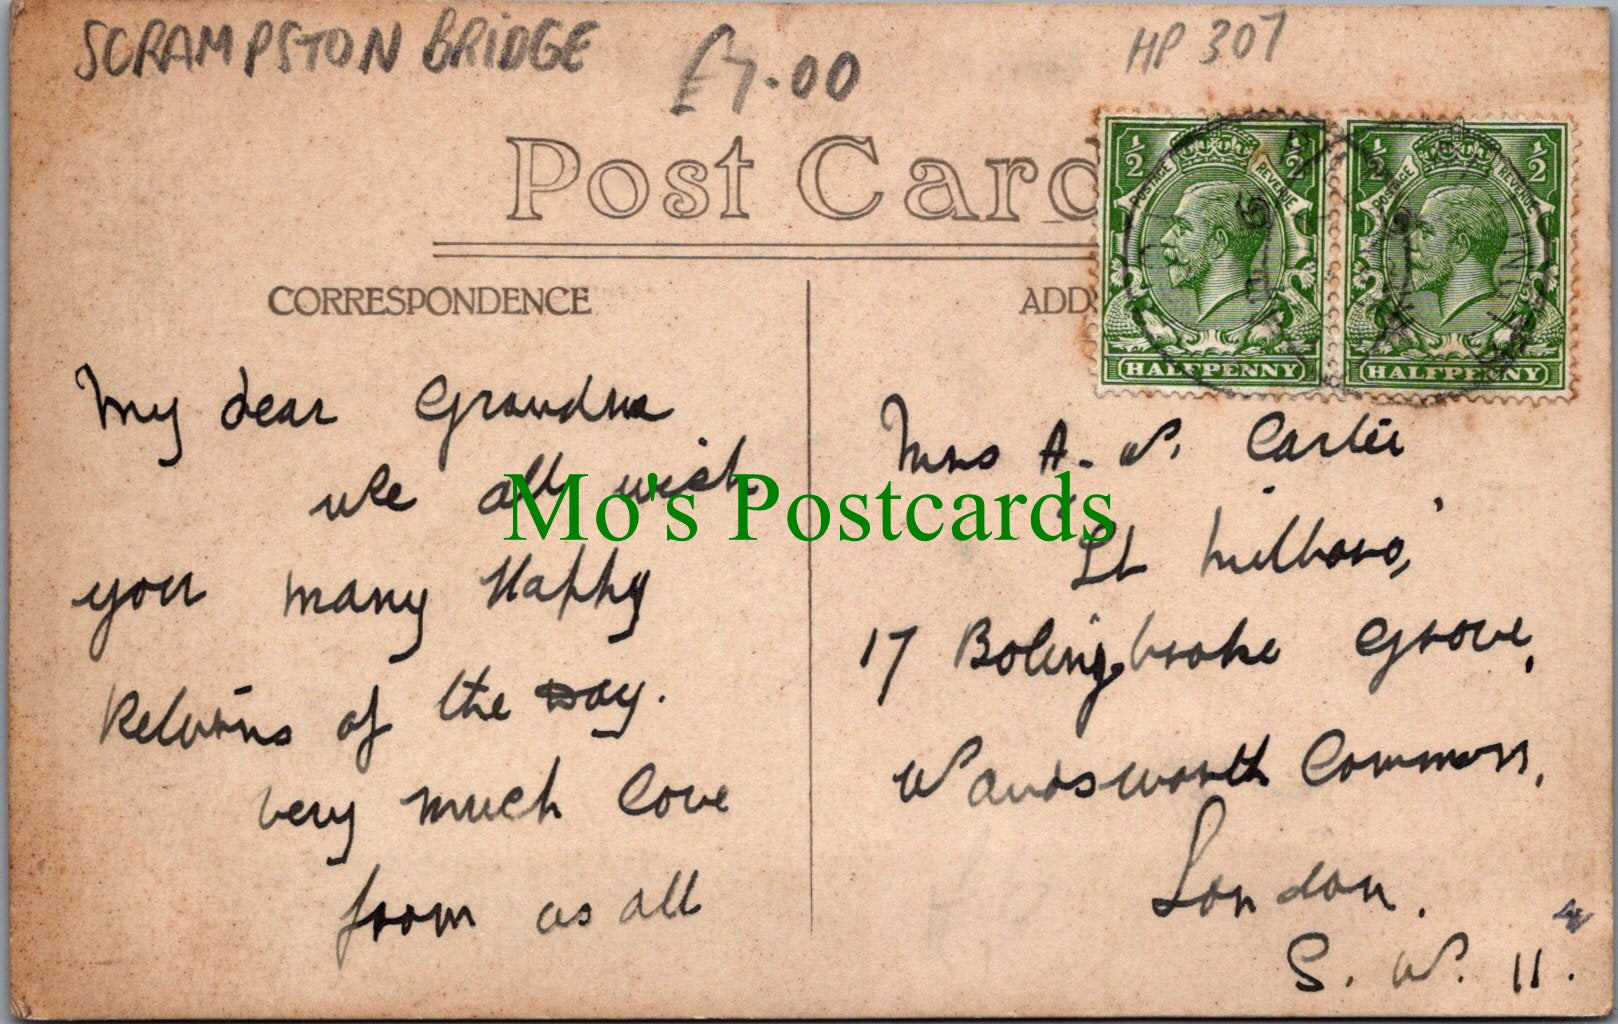 SCRAMPSTON BRIDGE £7.00 HP 307
Post Card
CORRESPONDENCE
ADD
½ ½ POSTAGE REVENUE HALFPENNY
½ ½ POSTAGE REVENUE HALFPENNY
My dear Grandma
We all wish
you many Happy
Returns of the Day.
very much love
from us all
Mrs A. W. Carter
17 Bolingbroke Grove,
Wandsworth Common,
London.
S. W. 11.
Mo's Postcards